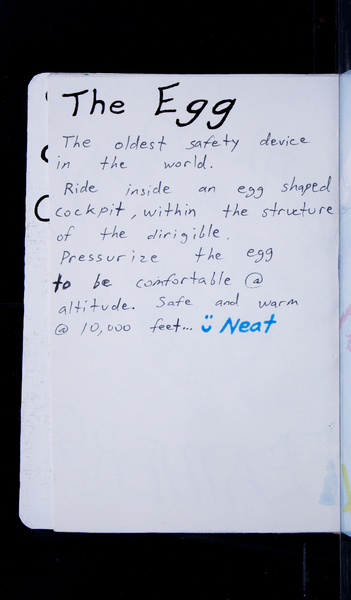 The Egg
The oldest safety device
in the world.
Ride inside an egg shaped
cockpit, within the structure
of the dirigible.
Pressurize the egg
to be comfortable @
altitude. Safe and warm
@ 10,000 feet... Neat